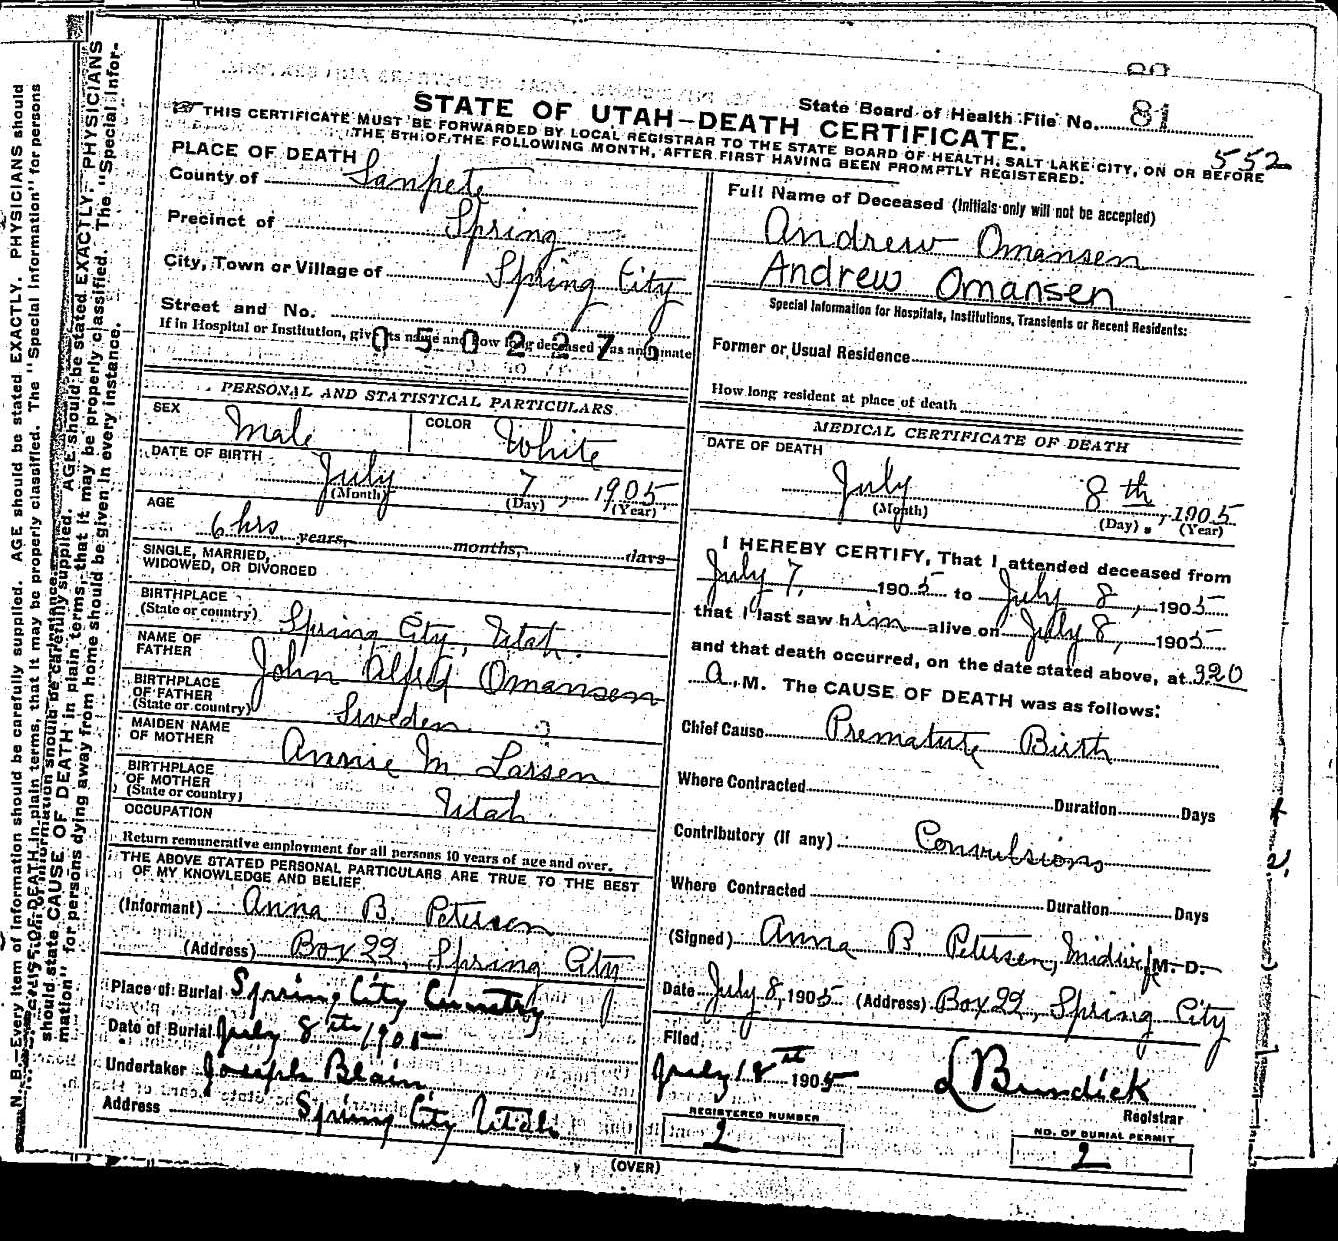 State Board of Health File No. 81
552
STATE OF UTAH—DEATH CERTIFICATE.
THIS CERTIFICATE MUST BE FORWARDED BY LOCAL REGISTRAR TO THE STATE BOARD OF HEALTH, SALT LAKE CITY, ON OR BEFORE
THE 5TH OF THE FOLLOWING MONTH, AFTER FIRST HAVING BEEN PROMPTLY REGISTERED.
PLACE OF DEATH
County of Sanpete
Precinct of Spring
City, Town or Village of Spring City
Street and No.
If in Hospital or Institution, give its name and how long deceased was an inmate
0502276
PERSONAL AND STATISTICAL PARTICULARS
SEX Male COLOR White
DATE OF BIRTH July 7, 1905
(Month) (Day) (Year)
AGE 6 hrs years, months, days
SINGLE, MARRIED,
WIDOWED, OR DIVORCED
BIRTHPLACE
(State or country) Spring City, Utah.
NAME OF
FATHER John Alfred Omansen
BIRTHPLACE
OF FATHER
(State or country) Sweden
MAIDEN NAME
OF MOTHER Annie M Larsen
BIRTHPLACE
OF MOTHER
(State or country) Utah
OCCUPATION
Return remunerative employment for all persons 10 years of age and over.
THE ABOVE STATED PERSONAL PARTICULARS ARE TRUE TO THE BEST
OF MY KNOWLEDGE AND BELIEF
(Informant) Anna B. Petersen
(Address) Box 22, Spring City
Place of Burial Spring City Cemetry
Date of Burial July 8th 1905
Undertaker Joseph Blain
Address Spring City Utah
Full Name of Deceased (Initials only will not be accepted)
Andrew Omansen
Andrew Omansen
Special Information for Hospitals, Institutions, Transients or Recent Residents:
Former or Usual Residence
How long resident at place of death
MEDICAL CERTIFICATE OF DEATH
DATE OF DEATH
July 8th, 1905
(Month) (Day) (Year)
I HEREBY CERTIFY, That I attended deceased from
July 7, 1905 to July 8, 1905
that I last saw him alive on July 8, 1905
and that death occurred, on the date stated above, at 3 20
a. M. The CAUSE OF DEATH was as follows:
Chief Cause Premature Birth
Where Contracted Duration Days
Contributory (if any) Convulsions
Where Contracted Duration Days
(Signed) Anna B Petersen, Midwife M. D.
Date July 8, 1905 (Address) Box 22, Spring City
Filed
July 18st 1905 L Bundick
Registrar
REGISTERED NUMBER
2
NO. OF BURIAL PERMIT
2
(OVER)
N. B.—Every item of information should be carefully supplied. AGE should be stated EXACTLY. PHYSICIANS should
should state CAUSE OF DEATH in plain terms, that it may be properly classified. The "Special Information" for persons
mation" for persons dying away from home should be given in every instance.